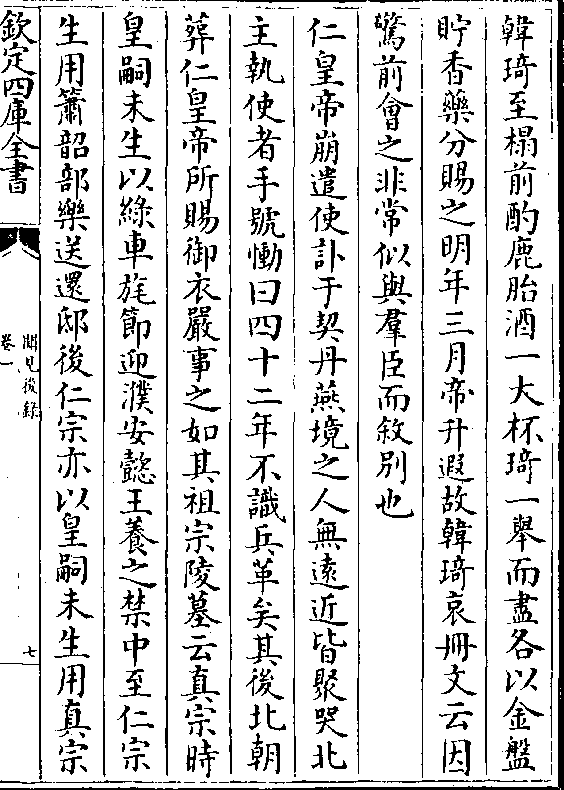 韓琦至榻前酌鹿胎酒一大杯琦一舉而盡各以金盤
貯香藥分賜之明年三月帝升遐故韓琦哀冊文云因
驚前會之非常似與羣臣而敘別也
仁皇帝崩遣使訃于契丹燕境之人無遠近皆聚哭北
主執使者手號慟曰四十二年不識兵革矣其後北朝
葬仁皇帝所賜御衣嚴事之如其祖宗陵墓云真宗時
皇嗣未生以綠車旄節迎濮安懿王養之禁中至仁宗
生用簫韶部樂送還邸後仁宗亦以皇嗣未生用真宗
欽定四庫全書
聞見後錄
卷一
七